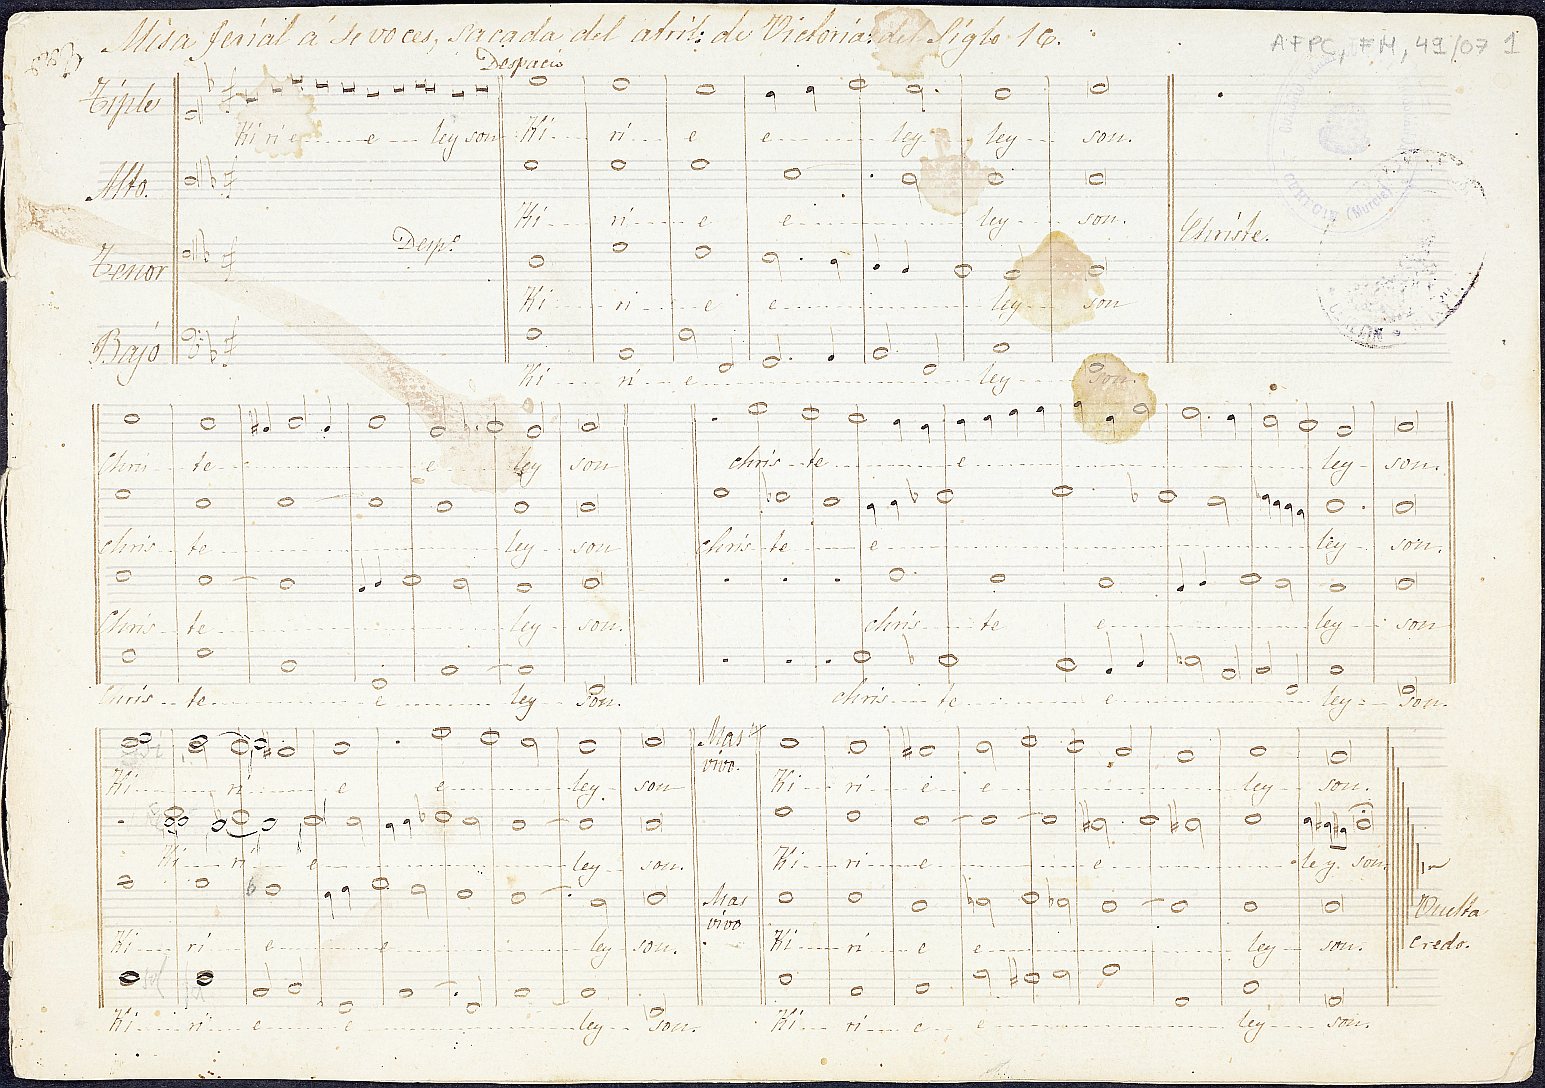 Misa ferial á 4 voces, sacada del atril: de Victoria: del Siglo 16.
AFPC, FM, 49/07 1
Despacio
Tiple
Ki ri e e ley son Ki ri e e ley ley son.
Alto.
Ki ri e e ley son.
Christe.
Desp.º
Tenor
Ki ri e e ley son
Bajo
Ki ri e ley son.
Chris te e ley son chris te e ley son.
Chris te ley son chris te e ley son.
Chris te ley son. chris te e ley son
Chris te e ley son. chris te e ley son.
Mas vivo.
Ki ri e e ley son Ki ri e e ley son.
Ki ri e ley son. Ki ri e e ley son.
Mas vivo
Ki ri e e ley son. Ki ri e e ley son.
Vuelta
credo.
Ki ri e e ley son. Ki ri e e ley son.